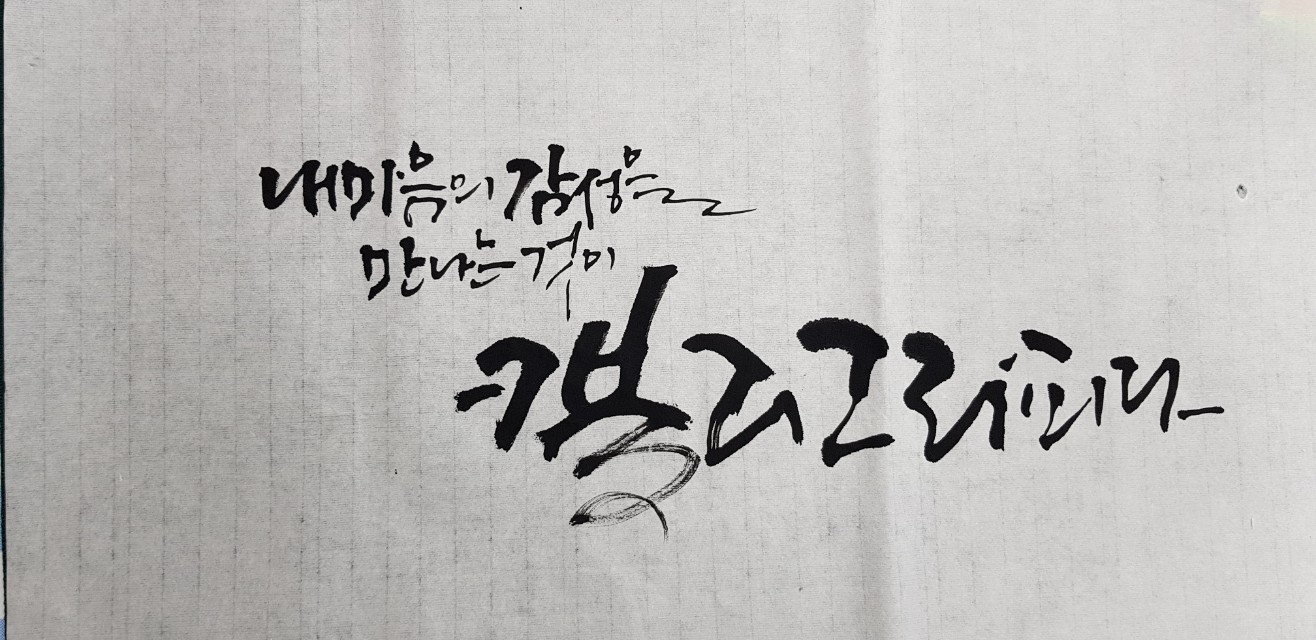 내마음의 감성을
만나는 것이
캘리그라피다